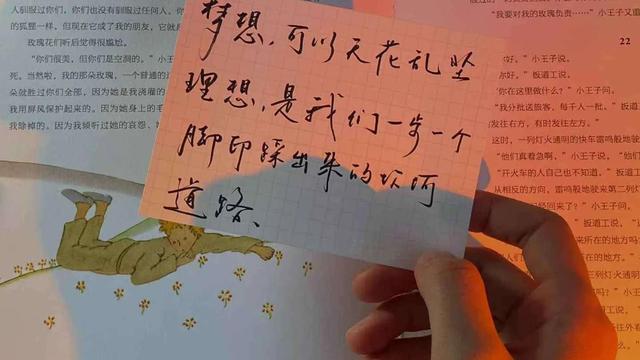 梦想,可以天花乱坠
理想,是我们一步一个
脚印踩出来的坎坷
道路。
人驯服过你们,你们也没有驯服过任何人。
的狐狸一样。但现在它成了我的朋友,它就
玫瑰花们听后觉得很尴尬。
“你们很美,但你们是空洞的。”小王子
死。当然啦,我的那朵玫瑰,一个普通的
朵就胜过你们全部,因为她是我浇灌的
我用屏风保护起来的。因为她身上的毛
我除掉的。因为我倾听过她的哀怨、
“我要对我的玫瑰负责……”小王子又重
22
好。”小王子说。
尔好。”扳道工说。
你在这里做什么?”小王子问。
我分批送旅客,每千人一批。”扳道
发往右方,有时发往左方。
这时,一列灯火通明的快车雷鸣般地
“他们真着急啊,”小王子说,
“开火车的人自己也不知道,”扳道工
从相反的方向,雷鸣般地驶来第二列灯
回来了?”小王子问。
”扳道工说。
来所在的地方。”
三列灯火通明
吗?”小王子
道工说,